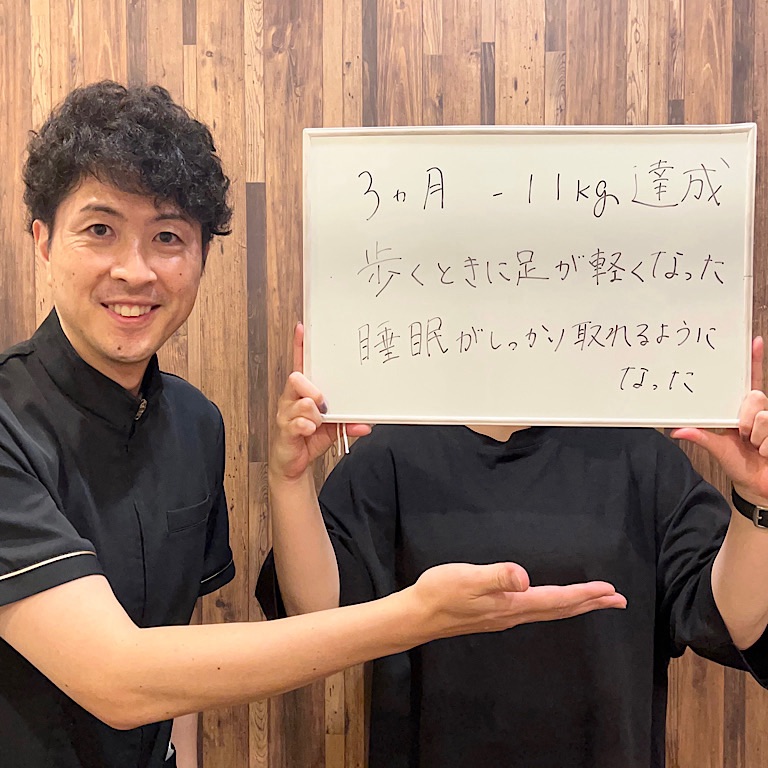 3ヵ月 -11kg 達成
歩くときに足が軽くなった
睡眠がしっかり取れるように
なった